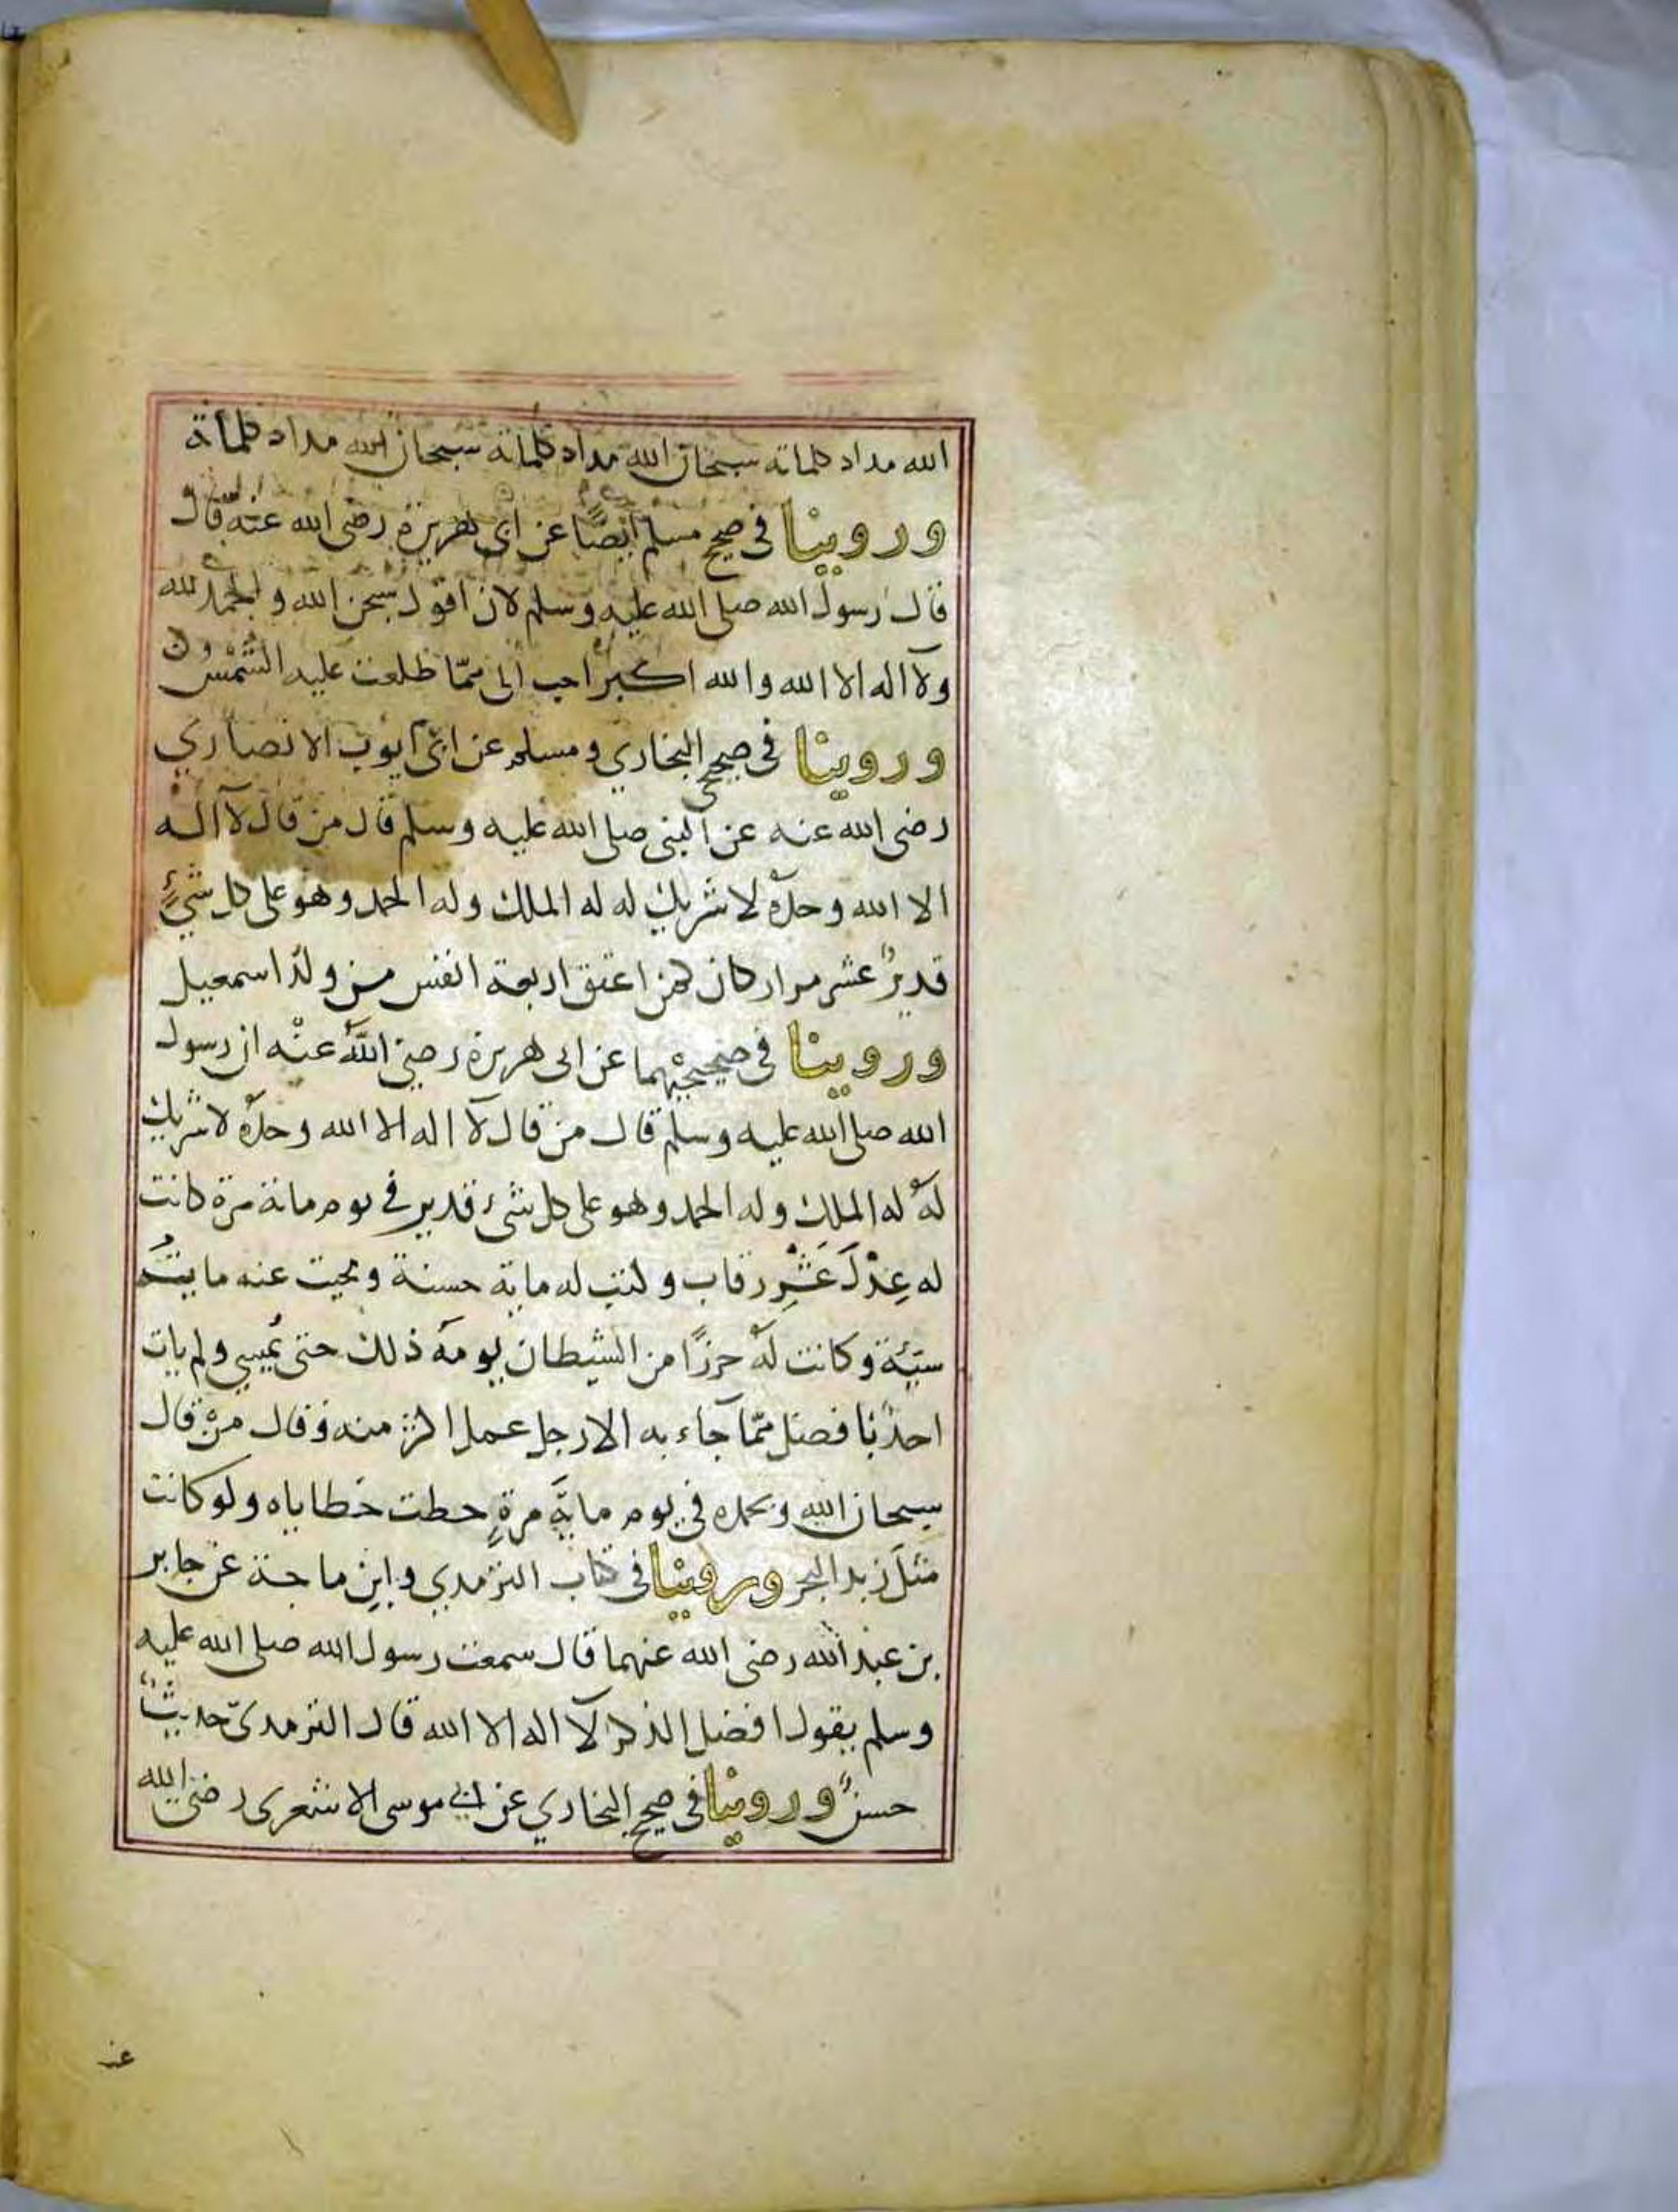 الله مداد كلماته سبحان الله مداد كلماته سبحان الله مداد كلماته
وروينا في صحيح مسلم أيضًا عن ابي هريرة رضى الله عنه قال
قال رسول الله صلى الله عليه وسلم لان اقول سبحن الله والحمد لله
ولآ اله الا الله والله اكبر احب الى ممّا طلعت عليه الشَّمْسُ
وروينا في صحيح البخاري ومسلم عن ابي ايوب الانصاري
رضى الله عنه عن النبي صلى الله عليه وسلم قال من قال لآ اله
الا الله وحدَهُ لا شريك له له الملك وله الحمد وهو على كل شيءٍ
قديرٌ عشر مرار كان كمن اعتق اربعة انفس من ولد اسمعيل
وروينا في صحيحيْهما عن ابي هريرة رضي اللهُ عنْه ان رسول
الله صلى الله عليه وسلم قال من قال لآ اله الا الله وحدَهُ لا شريك
لهُ له الملك وله الحمد وهو على كل شىء قدير في يوم مائة مرة كانت
له عِدْلَ عَشْرِ رقاب وكتب له ماية حسنة ومحيت عنه مايتُ
سيّئة وكانت لهُ حرزًا من الشيطان يومَهُ ذلك حتى يُمسي ولم يات
احدٌ بافضل ممّا جآء به الا رجل عمل اكثر منه وقال من قال
سبحان الله وبحمده في يوم مايةَ مرةٍ حطت خطاياه ولو كانت
مثلَ زبد البحر وروينا في كتاب الترمدي وابن ماجة عن جابر
بن عبد الله رضى الله عنهما قال سمعت رسول الله صلى الله عليه
وسلم يقول افضل الذكر لآ اله الا الله قال الترمدىّ حديثٌ
حسنٌ وروينا في صحيح البخاري عن ابي موسى الاشعرى رضى الله
عنه